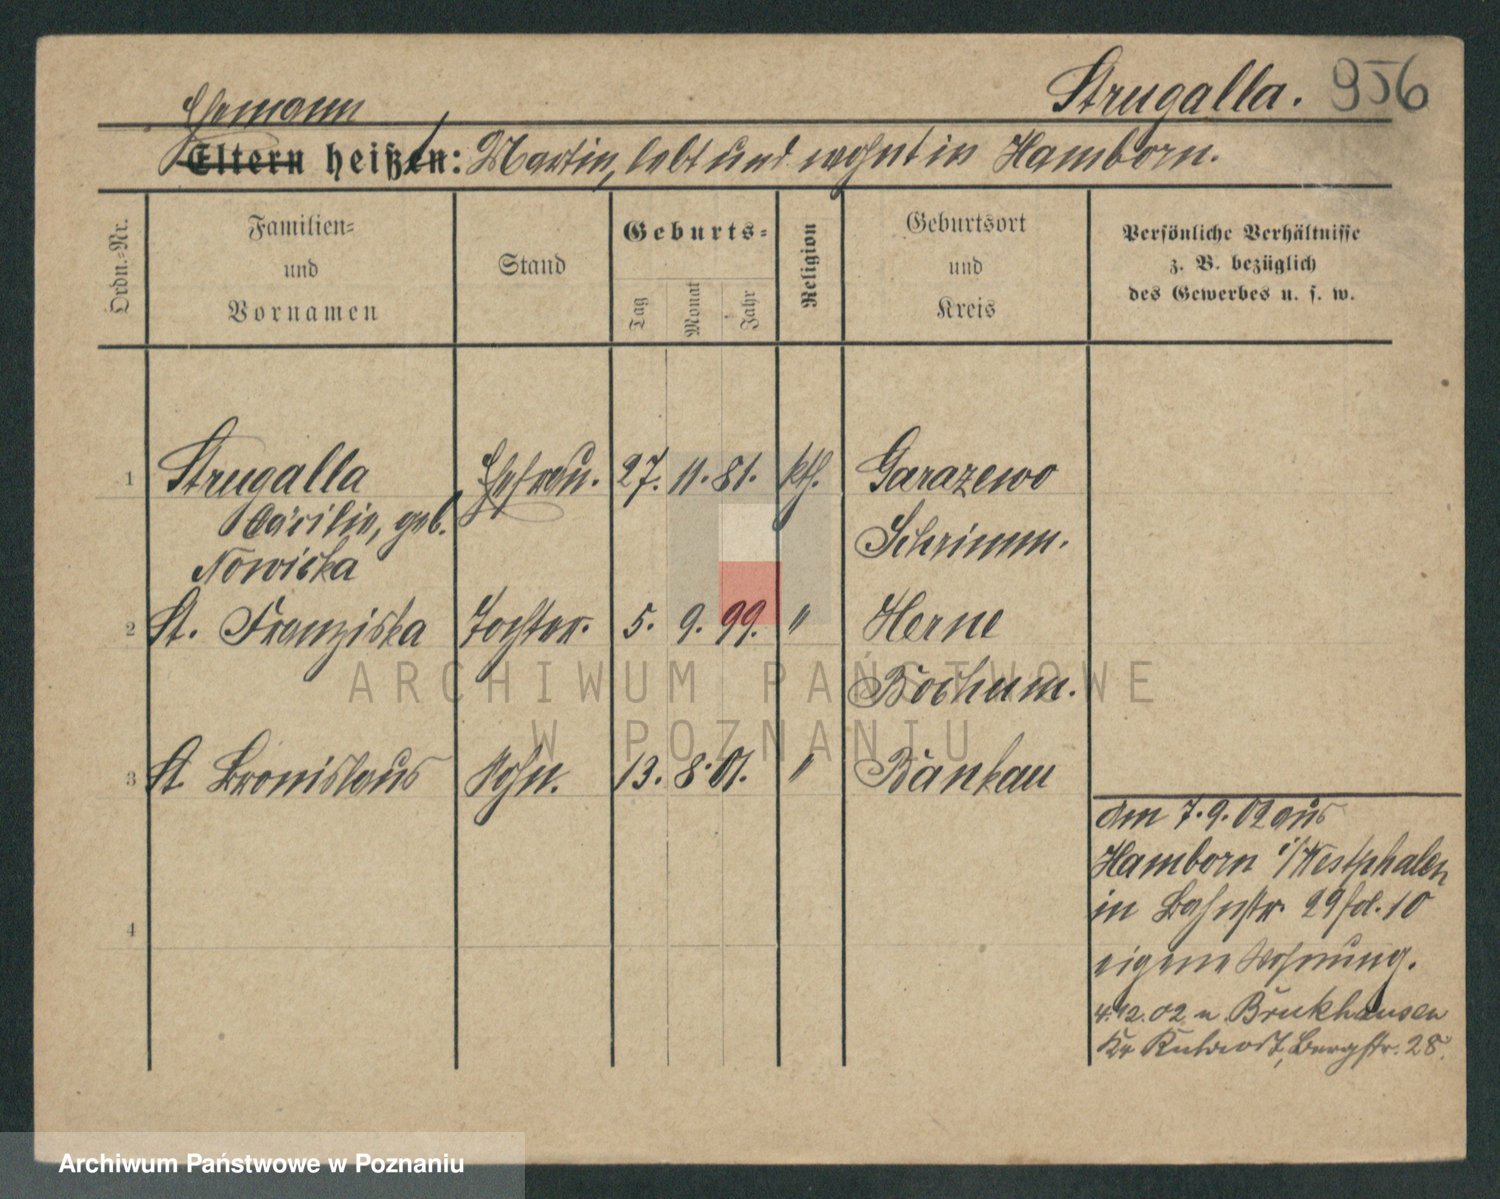 Strugalla. 956
Ehemann
Eltern heißen: Martin, lebt und wohnt in Hamborn.
Ordn.-Nr.
Familien-
und
Vornamen
Stand
Geburts-
Tag
Monat
Jahr
Religion
Geburtsort
und
Kreis
Persönliche Verhältnisse
z. B. bezüglich
des Gewerbes u. s. w.
1 Strugalla Ehefrau. 27. 11. 81. kth. Garazewo
Cäcilie, geb. Schrimm.
Nowicka
2 St. Franziska Tochter. 5. 9. 99. " Herne
Bochum.
3 St. Bronislaus Sohn. 13. 8. 01. " Bänkau
4
am 7.9.02 aus
Hamborn i/Westphalen
in Bahnstr. 29 fol. 10
eigene Wohnung.
4.12.02 n. Bruckhausen
Kr Ruhrort, Bergstr. 28.
ARCHIWUM PAŃSTWOWE
W POZNANIU
Archiwum Państwowe w Poznaniu